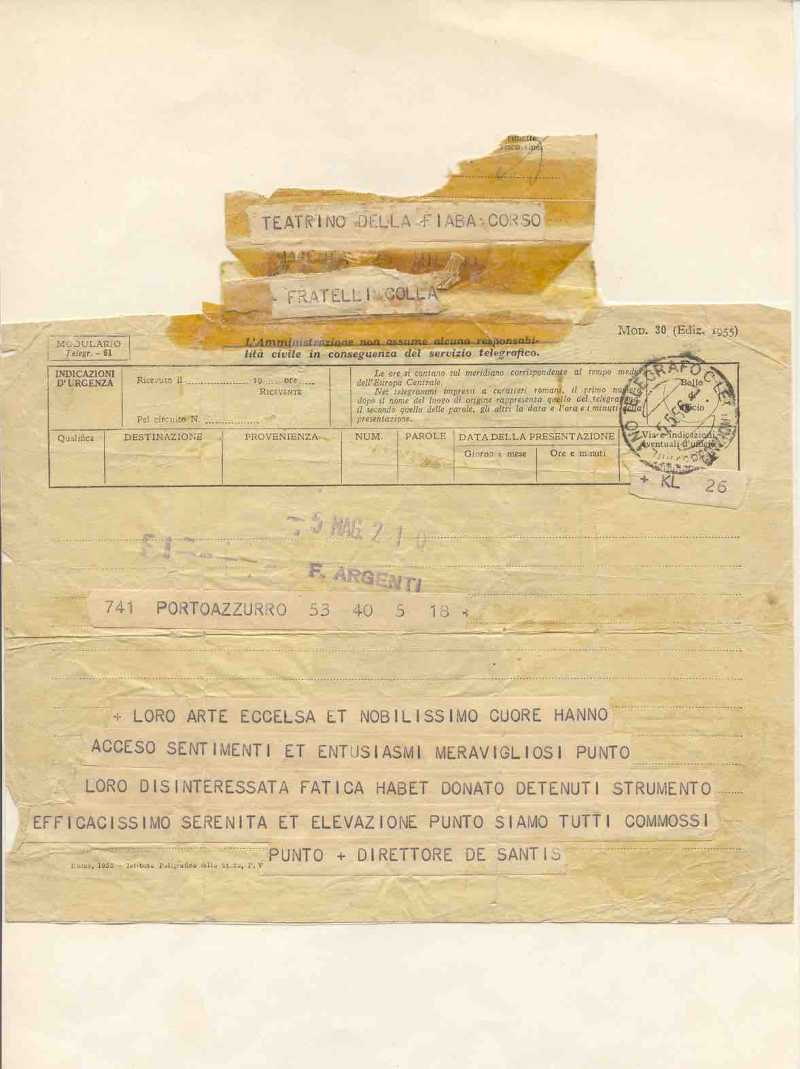 TEATRINO DELLA FIABA CORSO
FRATELLI COLLA
MODULARIO
Telegr. - 61
L'Amministrazione non assume alcuna responsabi-
lità civile in conseguenza del servizio telegrafico.
MOD. 30 (Ediz. 1955)
INDICAZIONI
D'URGENZA
Ricevuto il ........ 19 ..... ore .....
RICEVENTE
Pel circuito N.
Le ore si contano sul meridiano corrispondente al tempo medio
dell'Europa Centrale.
Nei telegrammi impressi a caratteri romani, il primo numero
dopo il nome del luogo di origine rappresenta quello del telegramma,
il secondo quello delle parole, gli altri la data e l'ora e i minuti della
presentazione.
Bollo
Ufficio
Qualifica
DESTINAZIONE
PROVENIENZA
NUM.
PAROLE
DATA DELLA PRESENTAZIONE
Giorno e mese
Ore e minuti
Via e indicazioni
eventuali d'ufficio
+ KL 26
5 MAG. 2 1 0
F. ARGENTI
741 PORTOAZZURRO 53 40 5 18
+ LORO ARTE ECCELSA ET NOBILISSIMO CUORE HANNO
ACCESO SENTIMENTI ET ENTUSIASMI MERAVIGLIOSI PUNTO
LORO DISINTERESSATA FATICA HABET DONATO DETENUTI STRUMENTO
EFFICACISSIMO SERENITA ET ELEVAZIONE PUNTO SIAMO TUTTI COMMOSSI
PUNTO + DIRETTORE DE SANTIS
Istituto Poligrafico dello Stato, P. V